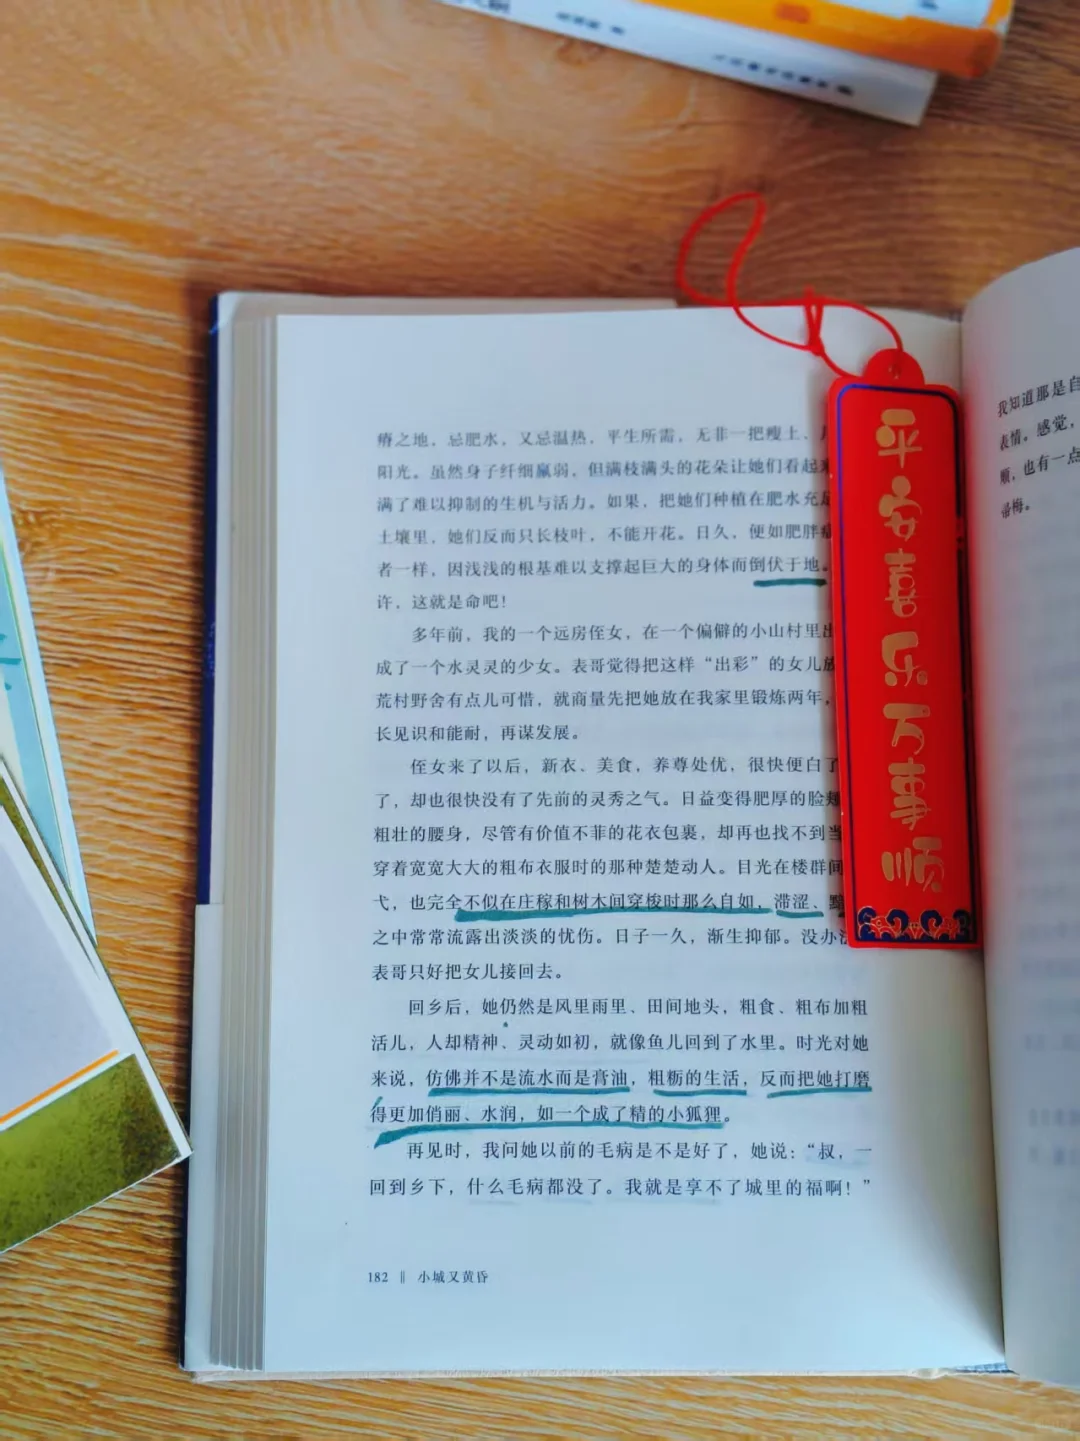 瘠之地，忌肥水，又忌温热，平生所需，无非一把瘦土、
阳光。虽然身子纤细羸弱，但满枝满头的花朵让她们看起来
满了难以抑制的生机与活力。如果，把她们种植在肥水充足
土壤里，她们反而只长枝叶，不能开花。日久，便如肥胖
者一样，因浅浅的根基难以支撑起巨大的身体而倒伏于地。
许，这就是命吧！
多年前，我的一个远房侄女，在一个偏僻的小山村里出
成了一个水灵灵的少女。表哥觉得把这样“出彩”的女儿放
荒村野舍有点儿可惜，就商量先把她放在我家里锻炼两年，
长见识和能耐，再谋发展。
侄女来了以后，新衣、美食，养尊处优，很快便白了
了，却也很快没有了先前的灵秀之气。日益变得肥厚的脸颊
粗壮的腰身，尽管有价值不菲的花衣包裹，却再也找不到当
穿着宽宽大大的粗布衣服时的那种楚楚动人。目光在楼群间
弋，也完全不似在庄稼和树木间穿梭时那么自如，滞涩、黯
之中常常流露出淡淡的忧伤。日子一久，渐生抑郁。没办法
表哥只好把女儿接回去。
回乡后，她仍然是风里雨里、田间地头，粗食、粗布加粗
活儿，人却精神、灵动如初，就像鱼儿回到了水里。时光对她
来说，仿佛并不是流水而是膏油，粗粝的生活，反而把她打磨
得更加俏丽、水润，如一个成了精的小狐狸。
再见时，我问她以前的毛病是不是好了，她说：“叔，一
回到乡下，什么毛病都没了。我就是享不了城里的福啊！”
182 || 小城又黄昏
平安喜乐万事顺
我知道那是自
表情。感觉，
顺，也有一点
帚梅。